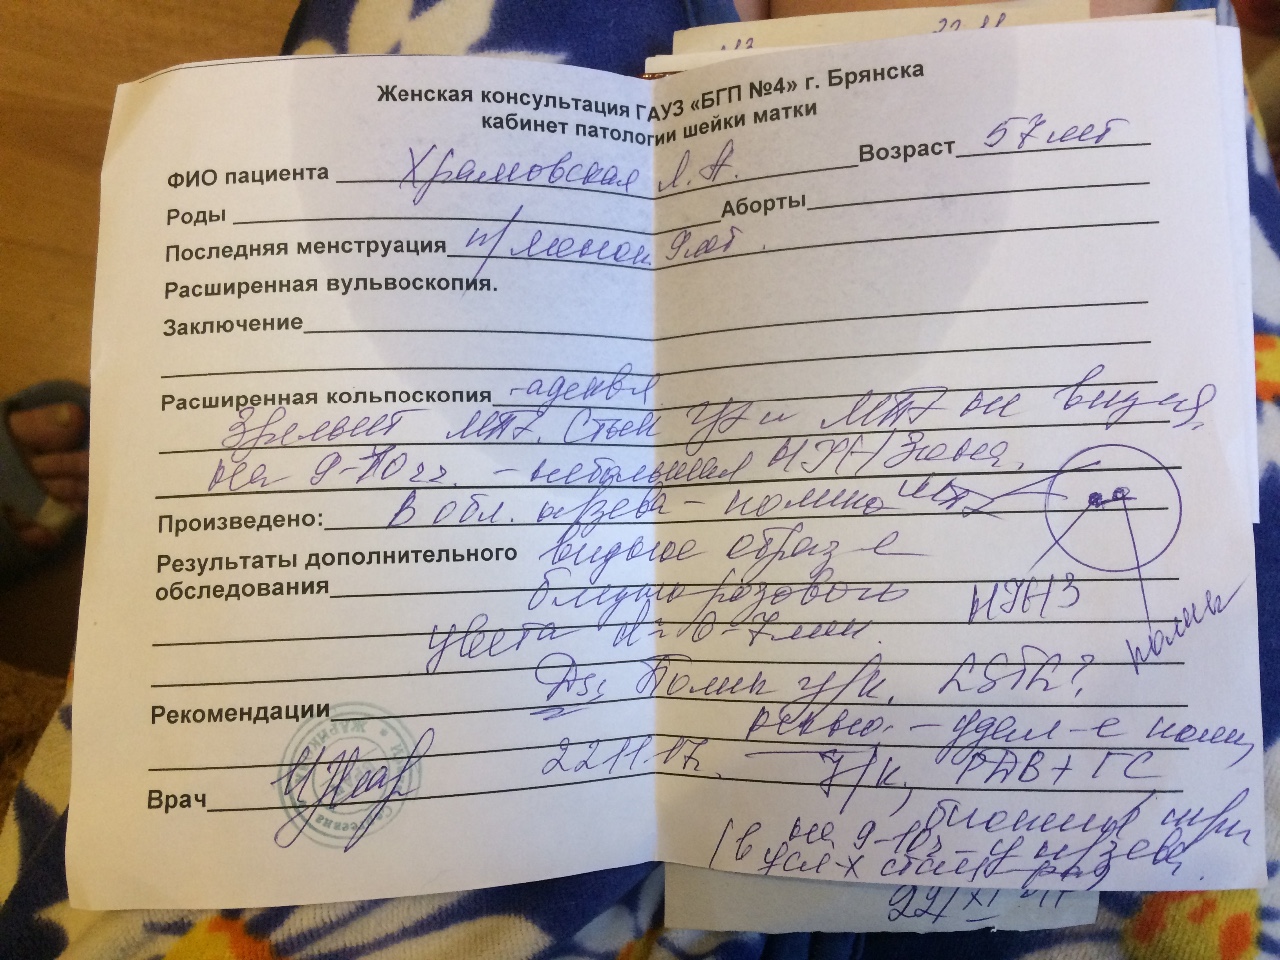 22 11
Женская консультация ГАУЗ «БГП №4» г. Брянска
кабинет патологии шейки матки
ФИО пациента Храмовская Л. А. Возраст 57 лет
Роды Аборты
Последняя менструация п/меноп. 9 лет.
Расширенная вульвоскопия.
Заключение
Расширенная кольпоскопия - адекв
МПЭ. Стык ЦЭ и МПЭ не визуа
на 9-10 чч. - небольшая ЙНЗона.
Произведено: В обл. н/зева - полипо
МПЭ
Результаты дополнительного видное образ-е
обследования бледно розового
ЙНЗ
цвета d= 6-7 мм.
полип
Ds: Полип ц/к. LSIL?
Рекомендации
реком. - удал-е полип
22 11 17г. ц/к, РДВ + ГС
Врач
биопсия ш/м
на 9-10ч - у н/зева
(в усл-х стац-ра)
22/XI